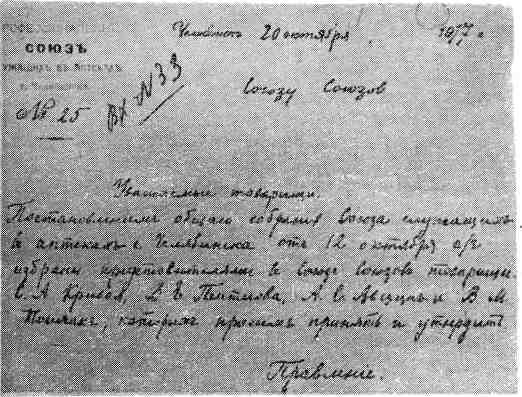 СОЮЗЪ
№ 25
Вх №33
Челябинскъ 20 октября 1917 г
Союзу Союзов
Уважаемые товарищи.
Постановлением общаго собрания Союза служащихъ
в аптеках г. Челябинска отъ 12 октября с/г
избраны представителями в Союз Союзов товарищи
А Кривая, А. В М
которых просимъ принять и утвердить
Правление.